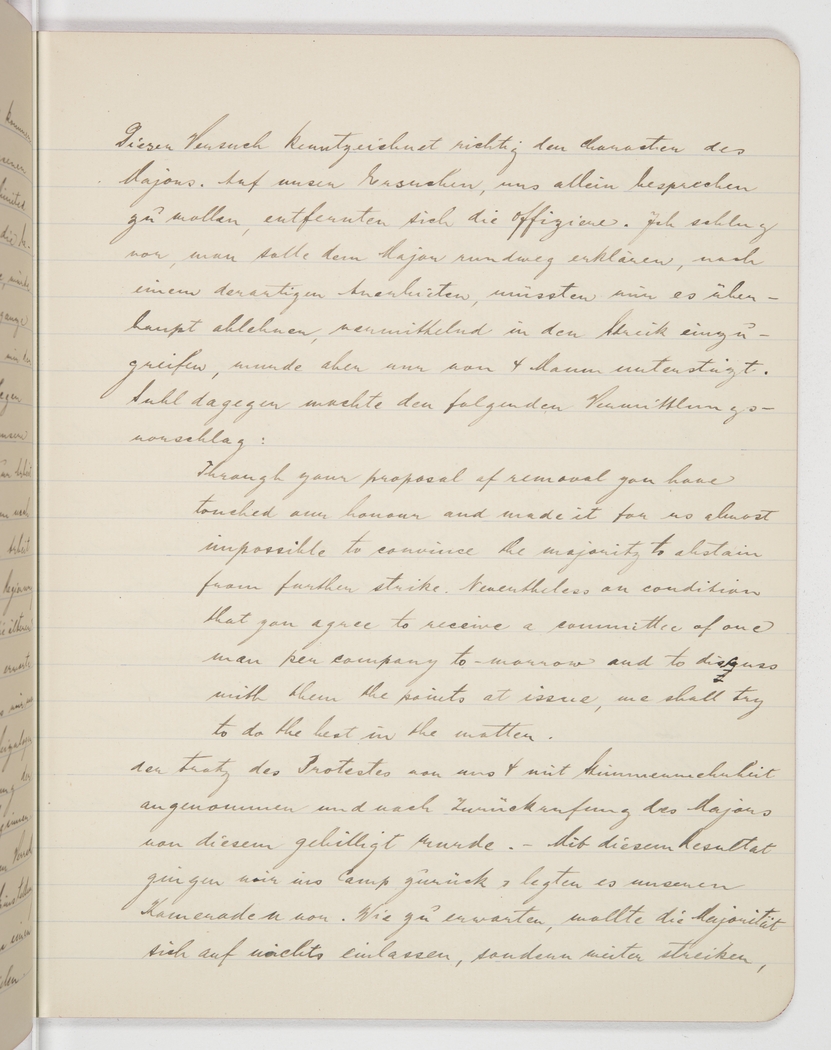 Dieser Versuch kenntzeichnet richtig den Charakter des
Majors. Auf unser Ersuchen, uns allein besprechen
zu wollen, entfernten sich die Offiziere. Ich schlug
vor, man solle dem Major rundweg erklären, nach
einem derartigen Anerbieten, müssten wir es über-
haupt ablehnen, vermittelnd in den Streik einzu-
greifen, wurde aber nur von 4 Mann unterstüzt.
Suhl dagegen machte den folgenden Vermittlungs-
vorschlag:
Through your proposal of removal you have
touched our honour and made it for us almost
impossible to convince the majority to abstain
from further strike. Nevertheless on condition
that you agree to receive a committee of one
man per company to-morrow and to discuss
with them the points at issue, we shall try
to do the best in the matter.
der trotz des Protestes von uns 4 mit Stimmenmehrheit
angenommen und nach Zurückrufung des Majors
von diesem gebilligt wurde. - Mit diesem Resultat
gingen wir ins Camp zurück & legten es unseren
Kameraden vor. Wie zu erwarten, wollte die Majorität
sich auf nichts einlassen, sondern weiter streiken,